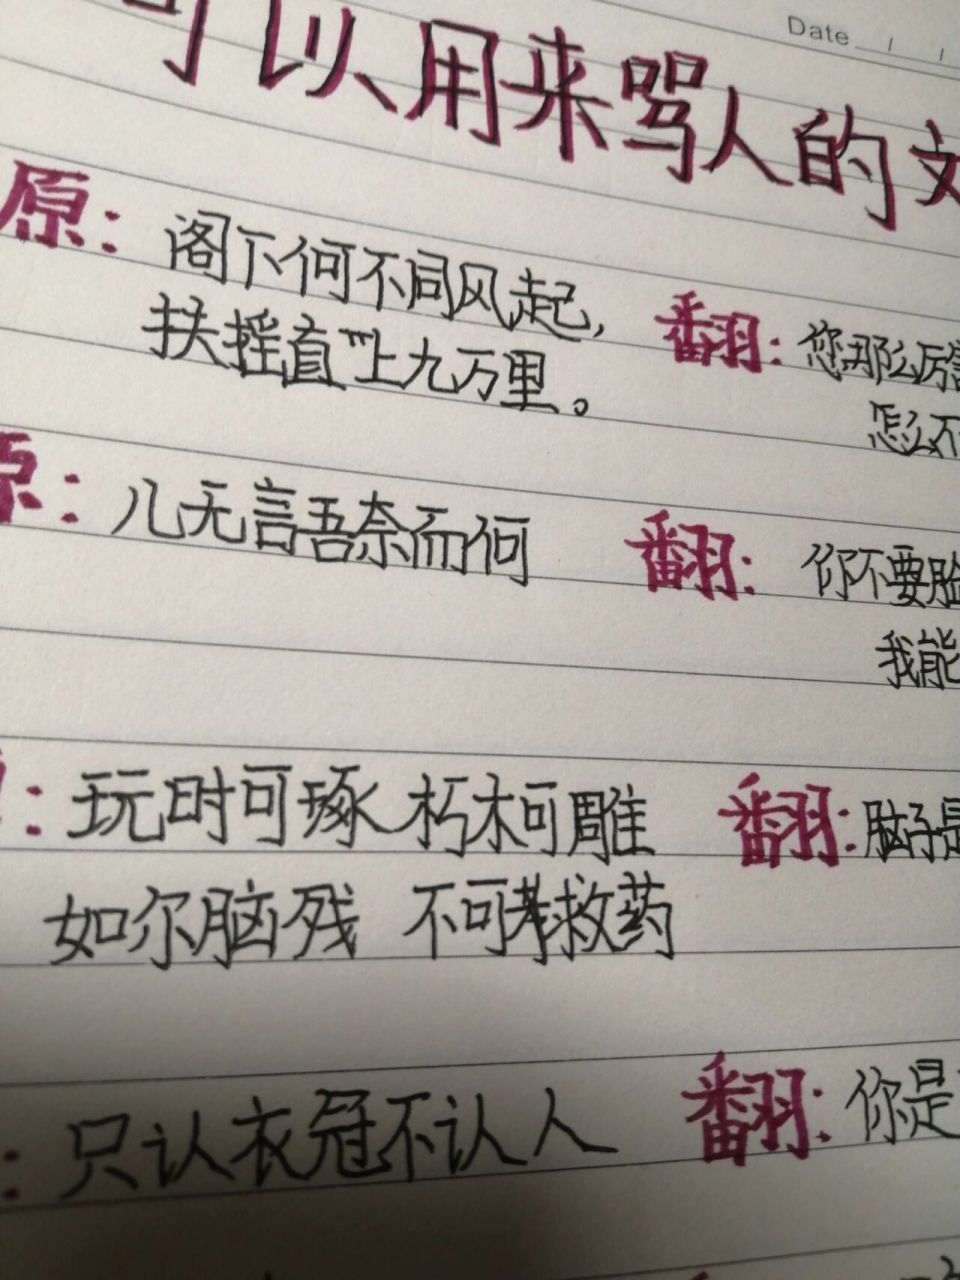 Date / /
可以用来骂人的文
原：阁下何不同风起，
扶摇直上九万里。
翻：您那么厉害
怎么不
原：儿无言吾奈而何
翻：你不要脸
我能
：玩时可琢 朽木可雕
如尔脑残 不可救药
翻：脑子是
：只认衣冠不认人
翻：你是